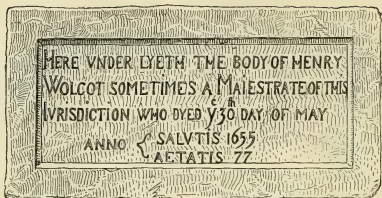 HERE VNDER LYETH THE BODY OF HENRY
WOLCOT SOMETIMES A MAIESTRATE OF THIS
IVRSDICTION WHO DYED Yᵉ 30ᵗʰ DAY OF MAY
ANNO { SALVTIS 1655
AETATIS 77